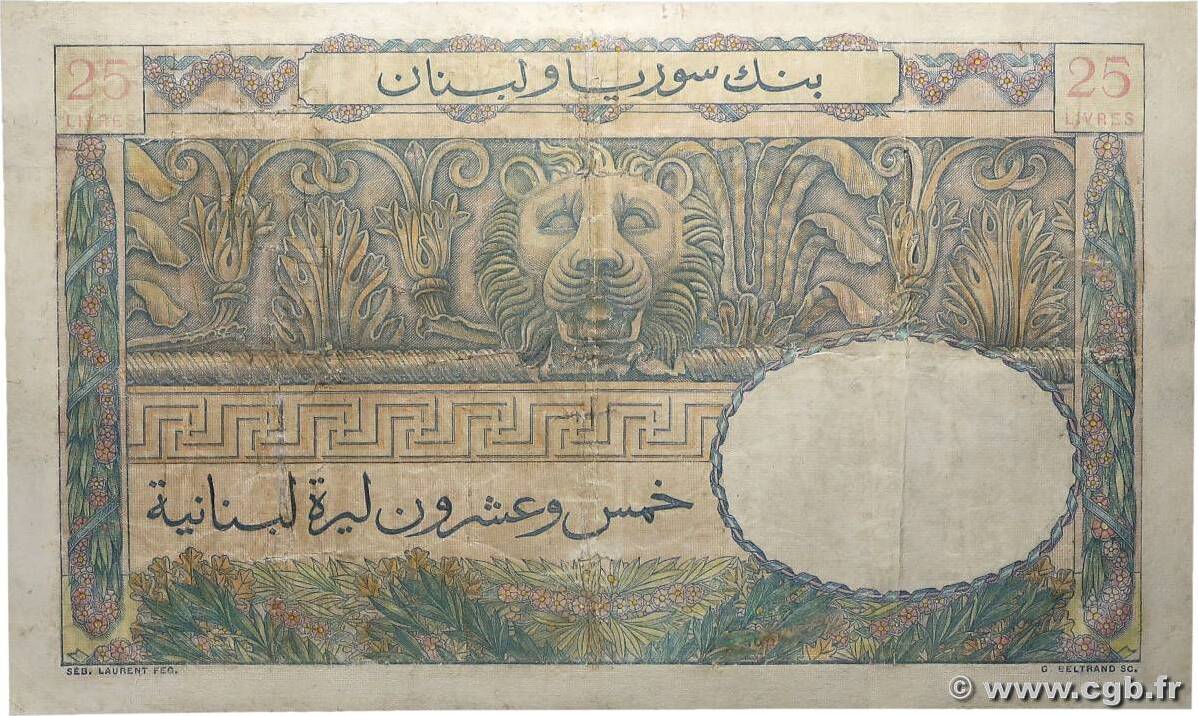 25
LIVRES
بنك سوريا ولبنان
25
LIVRES
خمس وعشرون ليرة لبنانية
SÉB. LAURENT FEC.
G. BELTRAND SC.
© www.cgb.fr